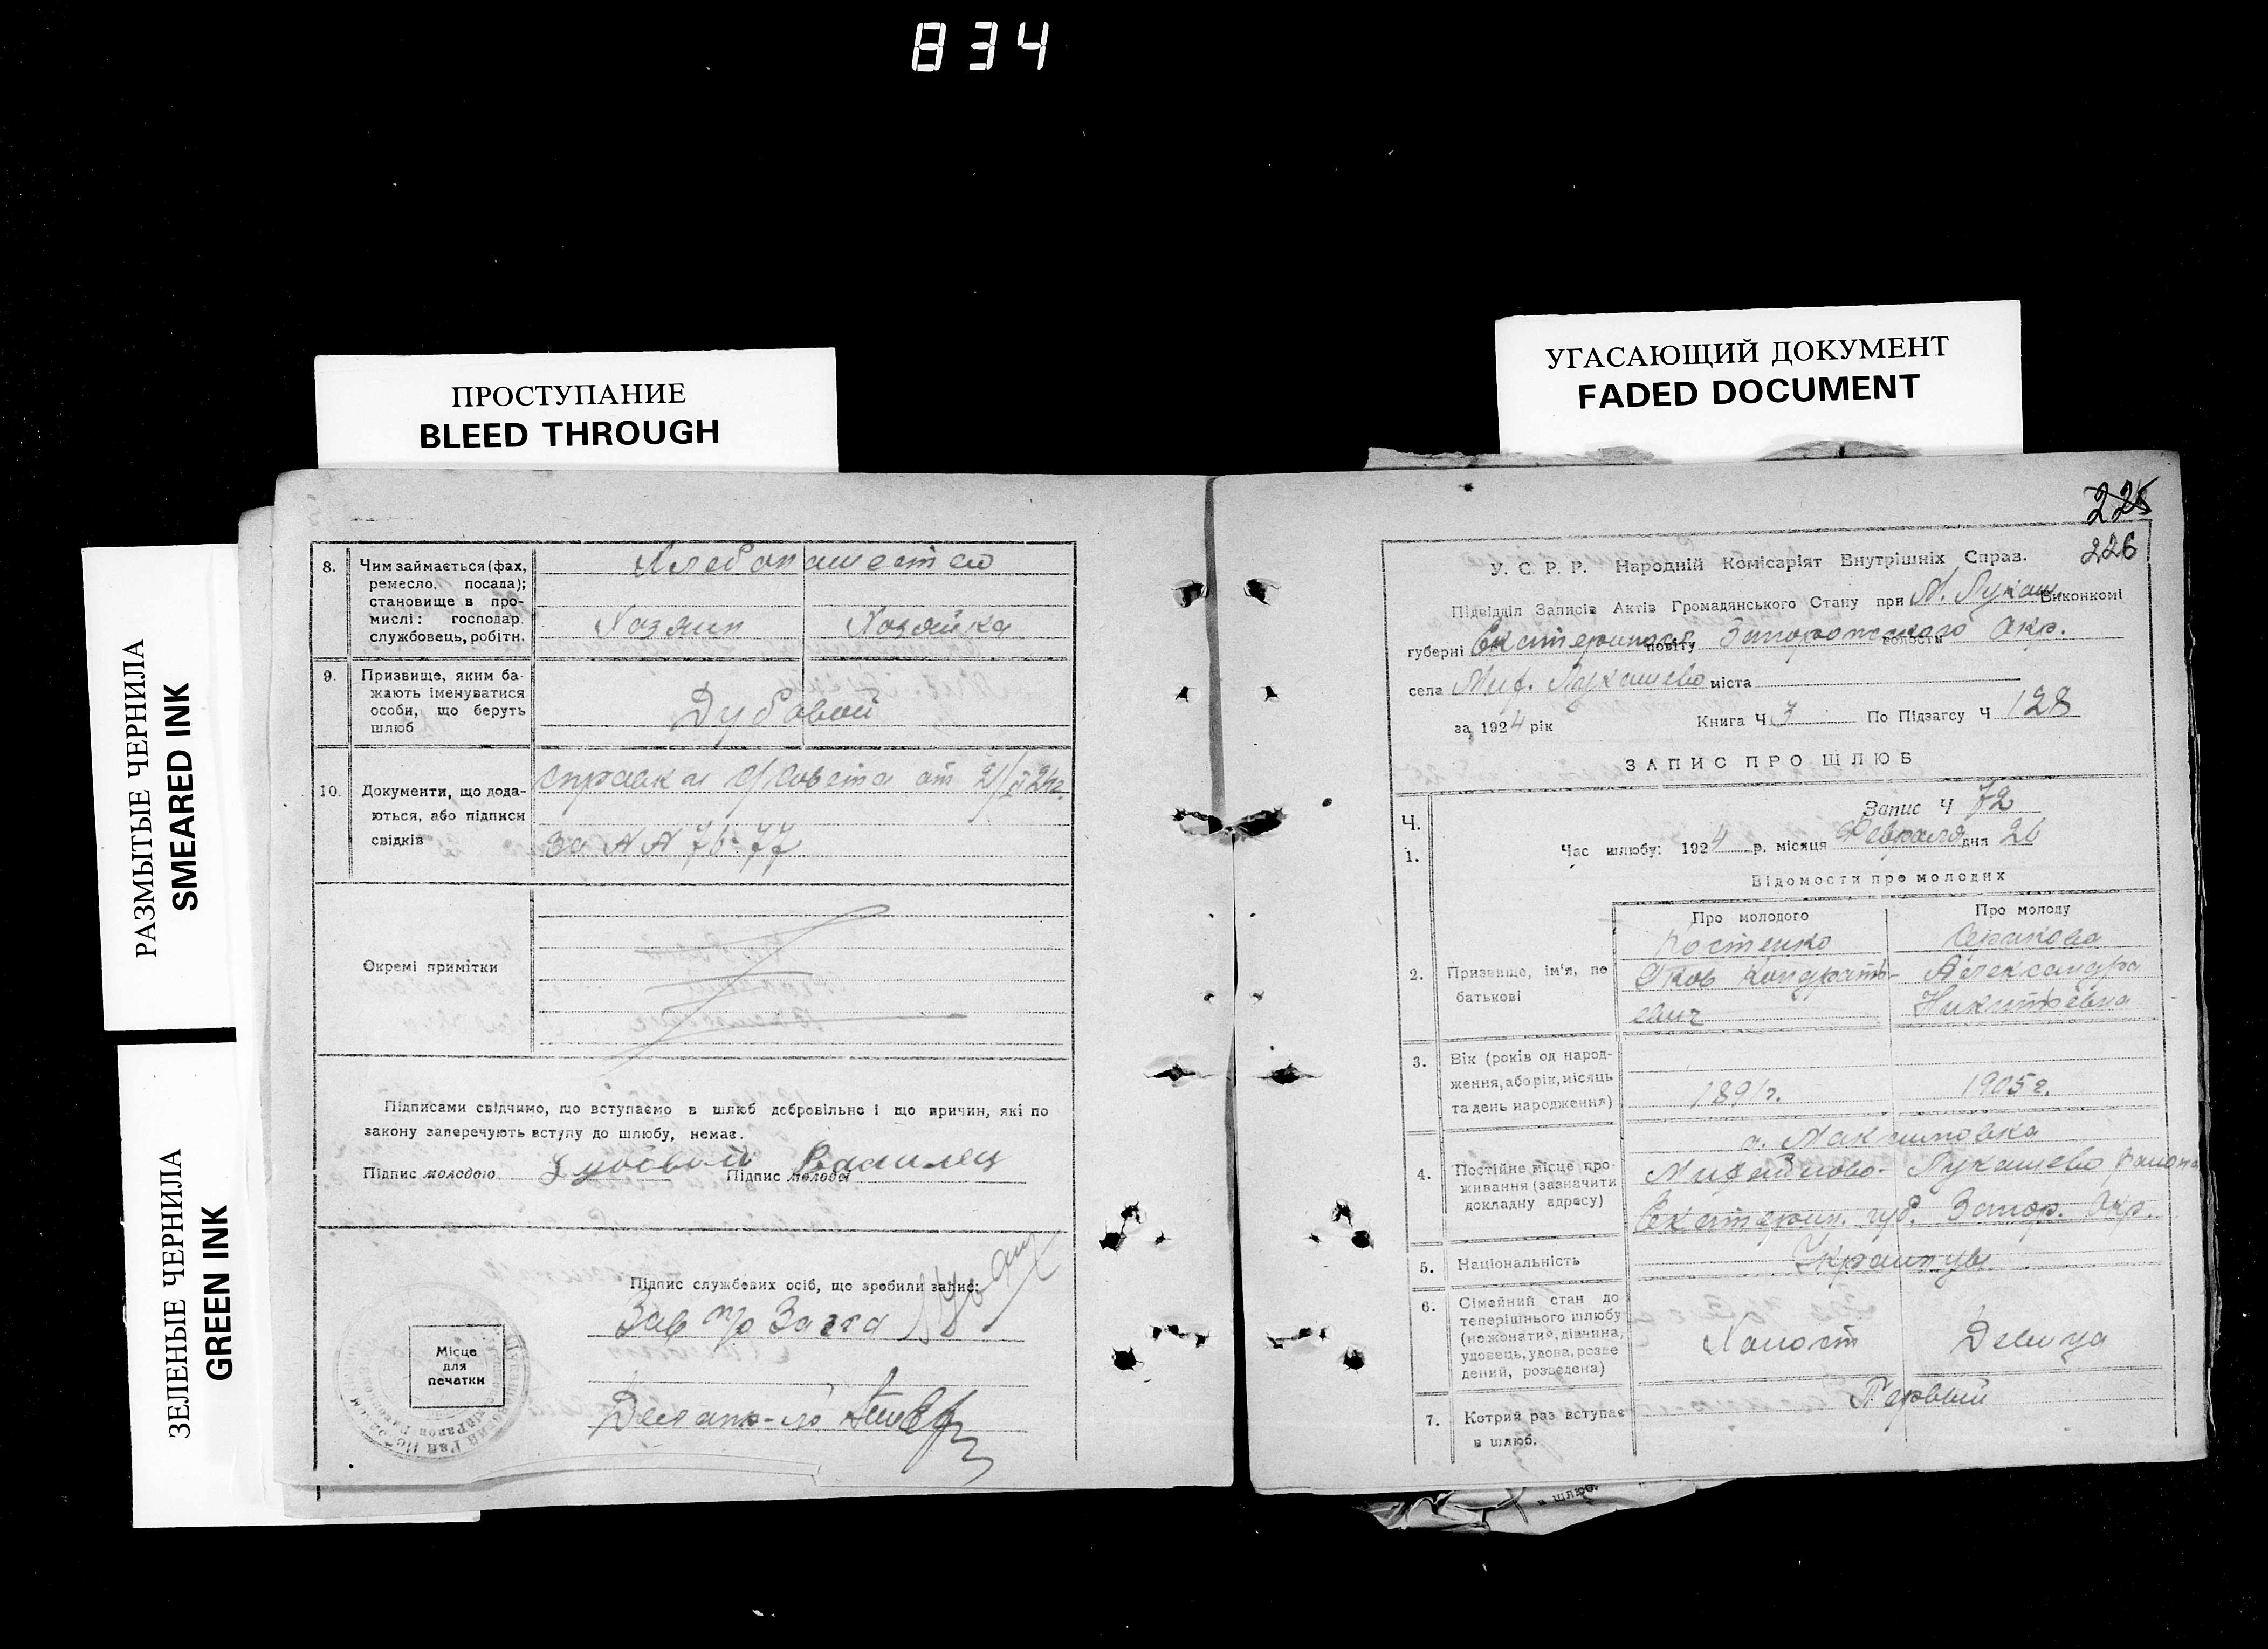 834
ПРОСТУПАНИЕ
BLEED THROUGH
УГАСАЮЩИЙ ДОКУМЕНТ
FADED DOCUMENT
РАЗМЫТЫЕ ЧЕРНИЛА
SMEARED INK
ЗЕЛЕНЫЕ ЧЕРНИЛА
GREEN INK
8. Чим займається (фах, ремесло, посада); становище в промислі: господар. службовець, робітн.
Хлебопашество
Хозяин Хозяйка
9. Призвище, яким бажають іменуватися особи, що беруть шлюб
Дубовой
10. Документи, що додаються, або підписи свідків
справка с/совета от 21/II 24г.
за NN 76-77
Окремі примітки
Підписами свідчимо, що вступаємо в шлюб добровільно і що причин, які по
закону заперечують вступу до шлюбу, немає.
Підпис молодого Дубовой Підпис молодої
Підпис службових осіб, що зробили запис:
Зав п/о Загса
Місце
для
печатки
Делопр-ль
225
226
У. С. Р. Р. Народній Комісаріят Внутрішніх Справ.
Підвідділ Записів Актів Громадянського Стану при М. Лукаш. Виконкомі
губерні Екатериносл. повіту Запорожского волости Окр.
села Миф. Лукашево міста
за 1924 рік Книга Ч 3 По Підзагсу Ч 128
ЗАПИС ПРО ШЛЮБ
Запис Ч 72
Ч. 1. Час шлюбу: 1924 р. місяця Февраля дня 26
Відомости про молодих
Про молодого Про молоду
2. Призвище, ім'я, по батькові
Костенко Серикова
Яков Кондрать- Александра
евич Никитьевна
3. Вік (років од народження, або рік, місяць та день народження)
1891г. 1905г.
4. Постійне місце проживання (зазначити докладну адресу)
с. Максимовка
Мифодиево-Лукашево района
Екатерин. губ. Запор. Окр.
5. Національність
Украинцы
6. Сімейний стан до теперішнього шлюбу (не жонатий, дівчина, удовець, удова, розведений, розведена)
Холост Девица
7. Котрий раз вступає в шлюб.
Первый
в шлюб.